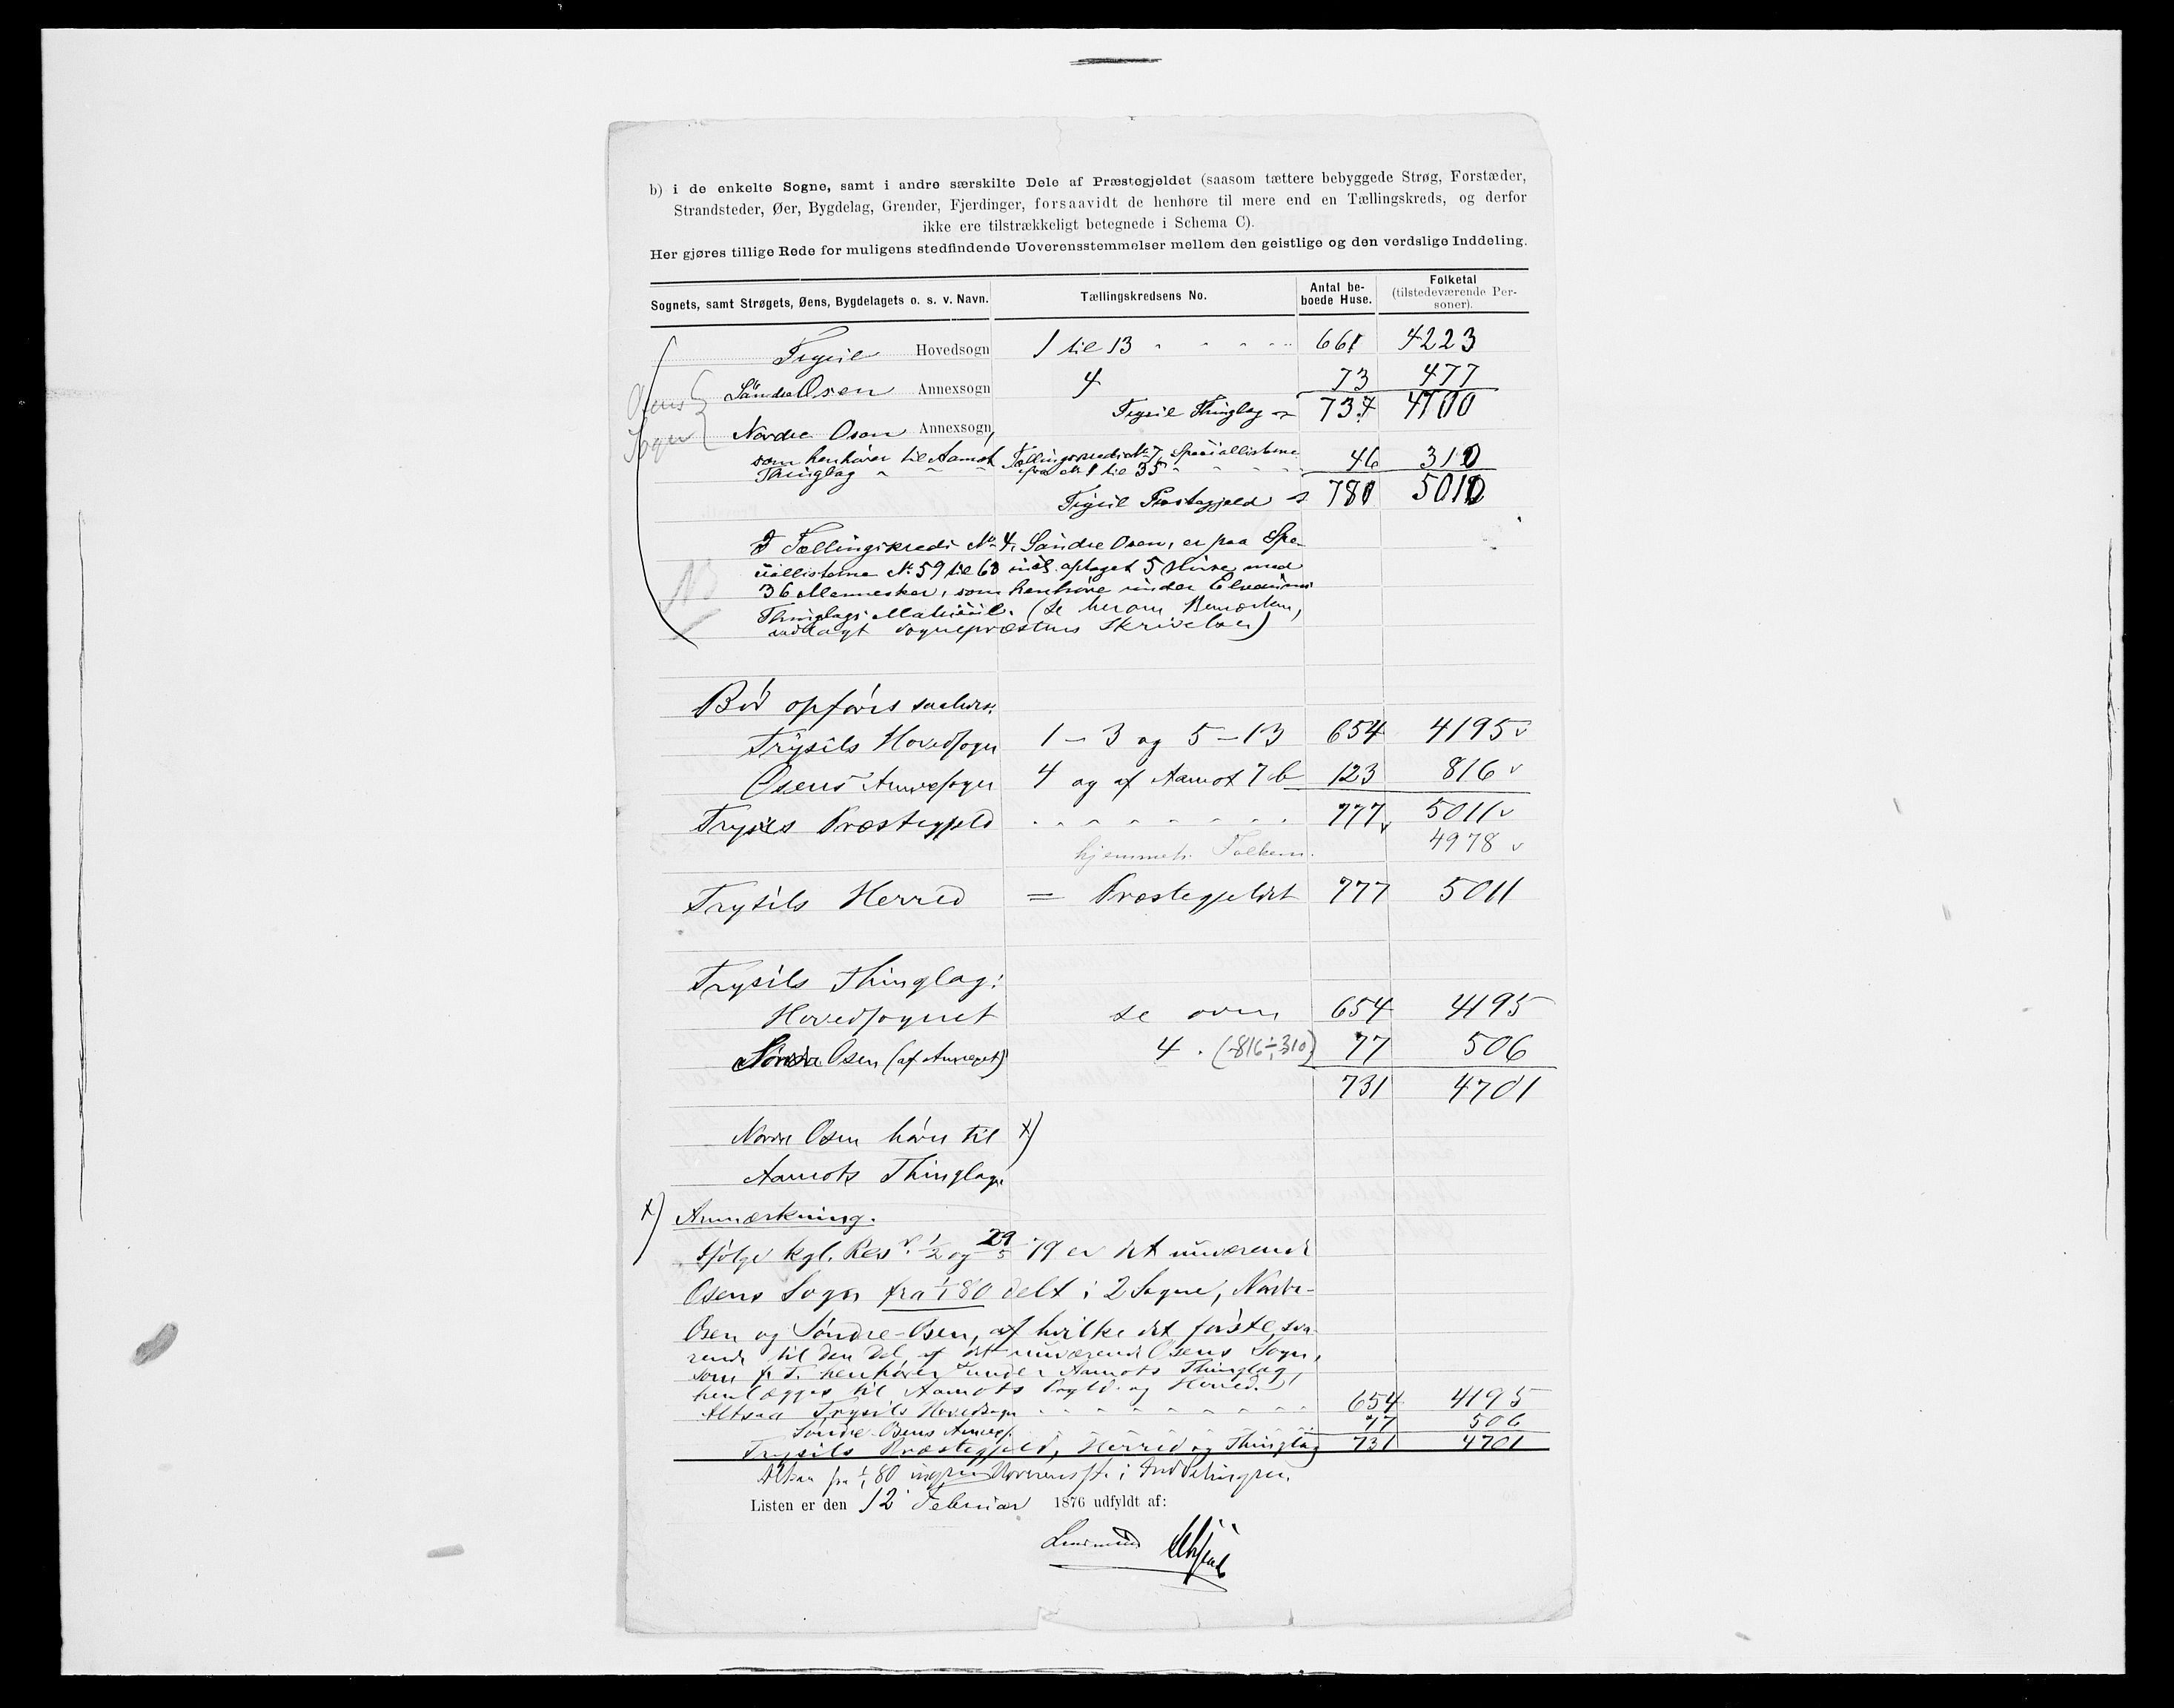 b) i de enkelte Sogne, samt i andre særskilte Dele af Præstegjeldet (saasom tættere bebyggede Strøg, Forstæder,
Strandsteder, Øer, Bygdelag, Grender, Fjerdinger, forsaavidt de henhøre til mere end en Tællingskreds, og derfor
ikke ere tilstrækkeligt betegnede i Schema C).
Her gjøres tillige Rede for muligens stedfindende Uoverensstemmelser mellem den geistlige og den verdslige Inddeling.
Sognets, samt Strøgets, Øens, Bygdelagets o. s. v. Navn. Tællingskredsens No. Antal beboede Huse. Folketal (tilstedeværende Personer).
Trysil Hovedsogn 1 til 13 661 4223
Søndre Osen Annexsogn 4 73 477
Osens Sogn
Trysil Thinglag 734 4700
Nordre Osen Annexsogn,
som henhører til Aamot Tællingskreds No 7, Speciallisterne 46 310
Thinglag fra No 1 til 35
Trysil Præstegjeld 780 5010
I Tællingskreds No 4, Søndre Osen, er paa Spe-
ciallisterne No 59 til 63 incl. optaget 5 Huse med
36 Mennesker, som henhøre under Elverums
Thinglags Matricul. (Se herom Bemærkn,
vedlagt Sognepræstens Skrivelse)
NB
Bør opføres saaledes:
Trysils Hovedsogn 1 – 3 og 5 – 13 654 4195 v
Osens Annexsogn 4 og af Aamot 7 b 123 816 v
Trysils Præstegjeld 777 v 5011 v
hjemmeh. Folkem. 4978 v
Trysils Herred = Præstegjeldet 777 5011
Trysils Thinglag:
Hovedsognet se oven 654 4195
Søndre Osen (af Annexet) 4 . (816 ÷ 310) 77 506
731 4701
Nordre Osen hører til x)
Aamots Thinglag.
x) Anmærkning.
Ifølge kgl. Res. 1/2 og 29/5 79 er det nuværende
Osens Sogn fra 1/1 80 delt i 2 Sogne, Nordre-
Osen og Søndre-Osen, af hvilke det første, sva-
rende til den Del af det nuværende Osens Sogn,
som p. T. henhører under Aamots Thinglag,
henlægges til Aamots Prgld. og Herred.
Altsaa Trysils Hovedsogn 654 4195
Søndre Osens Annexs. 77 506
Trysils Præstegjeld, Herred og Thinglag 731 4701
Altsaa fra 1/1 80 ingen Uoverensst. i Inddelingen.
Listen er den 12 Februar 1876 udfyldt af:
Lensmand